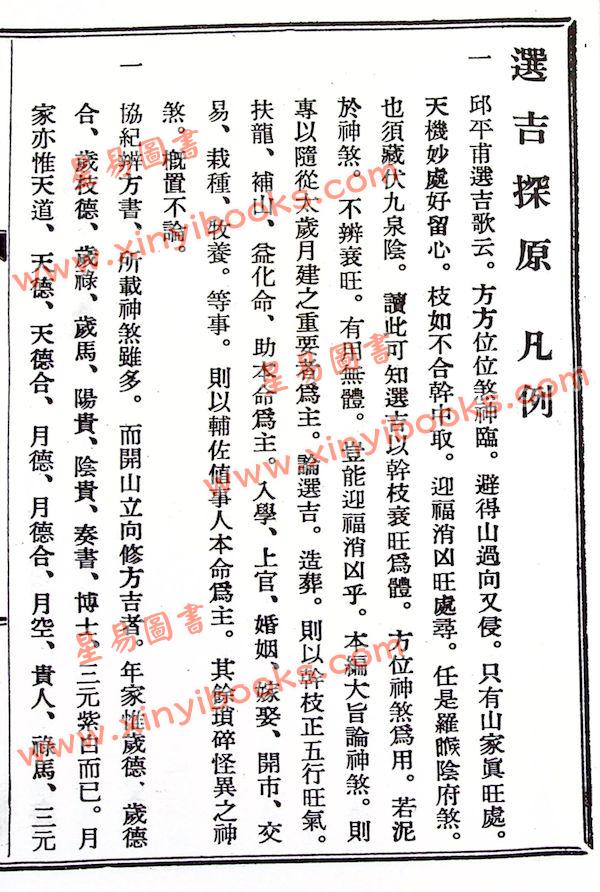 選吉探原 凡例
一 邱平甫選吉歌云。方方位位煞神臨。避得山過向又侵。只有山家眞旺處。
天機妙處好留心。枝如不合幹中取。迎福消凶旺處尋。任是羅睺陰府煞。
也須藏伏九泉陰。讀此可知選吉以幹枝衰旺爲體。方位神煞爲用。若泥
於神煞。不辨衰旺。有用無體。豈能迎福消凶乎。本編大旨論神煞。則
專以隨從太歲月建之重要者爲主。論選吉。造葬。則以幹枝正五行旺氣。
扶龍、補山、益化命、助本命爲主。入學、上官、婚姻、嫁娶、開市、交
易、栽種、牧養。等事。則以輔佐値事人本命爲主。其餘瑣碎怪異之神
煞。槪置不論。
一 協紀辨方書、所載神煞雖多。而開山立向修方吉者。年家惟歲德、歲德
合、歲枝德、歲祿、歲馬、陽貴、陰貴、奏書、博士。三元紫白而已。月
家亦惟天道、天德、天德合、月德、月德合、月空、貴人、祿馬、三元
星易圖書
www.xinyibooks.com
星易圖書
www.xinyibooks.com
星易圖書
www.xinyibooks.com